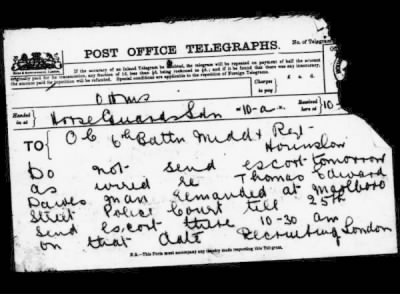 POST OFFICE TELEGRAPHS.
No. of Telegram
If the accuracy of an Inland Telegram be doubted, the telegram will be repeated on payment of half the amount
originally paid for its transmission, any fraction of 1d. less than ½d. being reckoned as ½d.; and if it be found that there was any inaccuracy,
the amount paid for repetition will be refunded. Special conditions are applicable to the repetition of Foreign Telegrams.
Charges to pay
£ s. d.
OHMS
Handed in at
Horse Guards Ldn
10-a
Received here at
10-
TO
O C 6th Battn Middx Regt
Hounslow
Do not send escort tomorrow
as wired re Thomas Edward
Davies man remanded at Marlboro
Street Police Court till 25th
send escort there 10-30 am
on that date Recruiting London
N.B.—This Form must accompany any inquiry made respecting this Telegram.